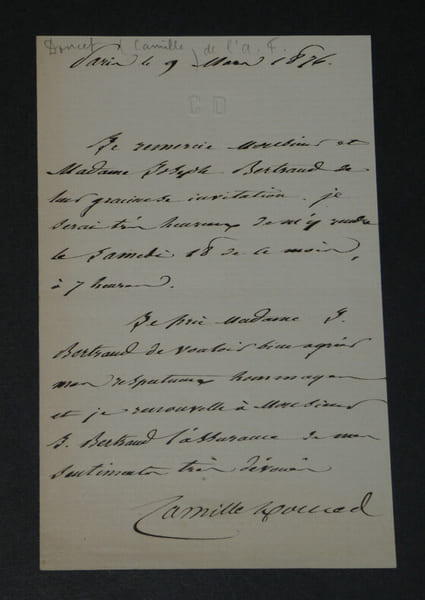 Doucet (Camille) de l'A. F.
Paris le 9 Mars 1876.
CD
Je remercie Monsieur et
Madame Joseph Bertrand de
leur gracieuse invitation. je
serai très heureux de m'y rendre
le Samedi 18 de ce mois,
à 7 heures.
Je prie Madame J.
Bertrand de vouloir bien agréer
mes respectueux hommages
et je renouvelle à Monsieur
J. Bertrand l'assurance de mes
sentiments très dévoués
Camille Doucet